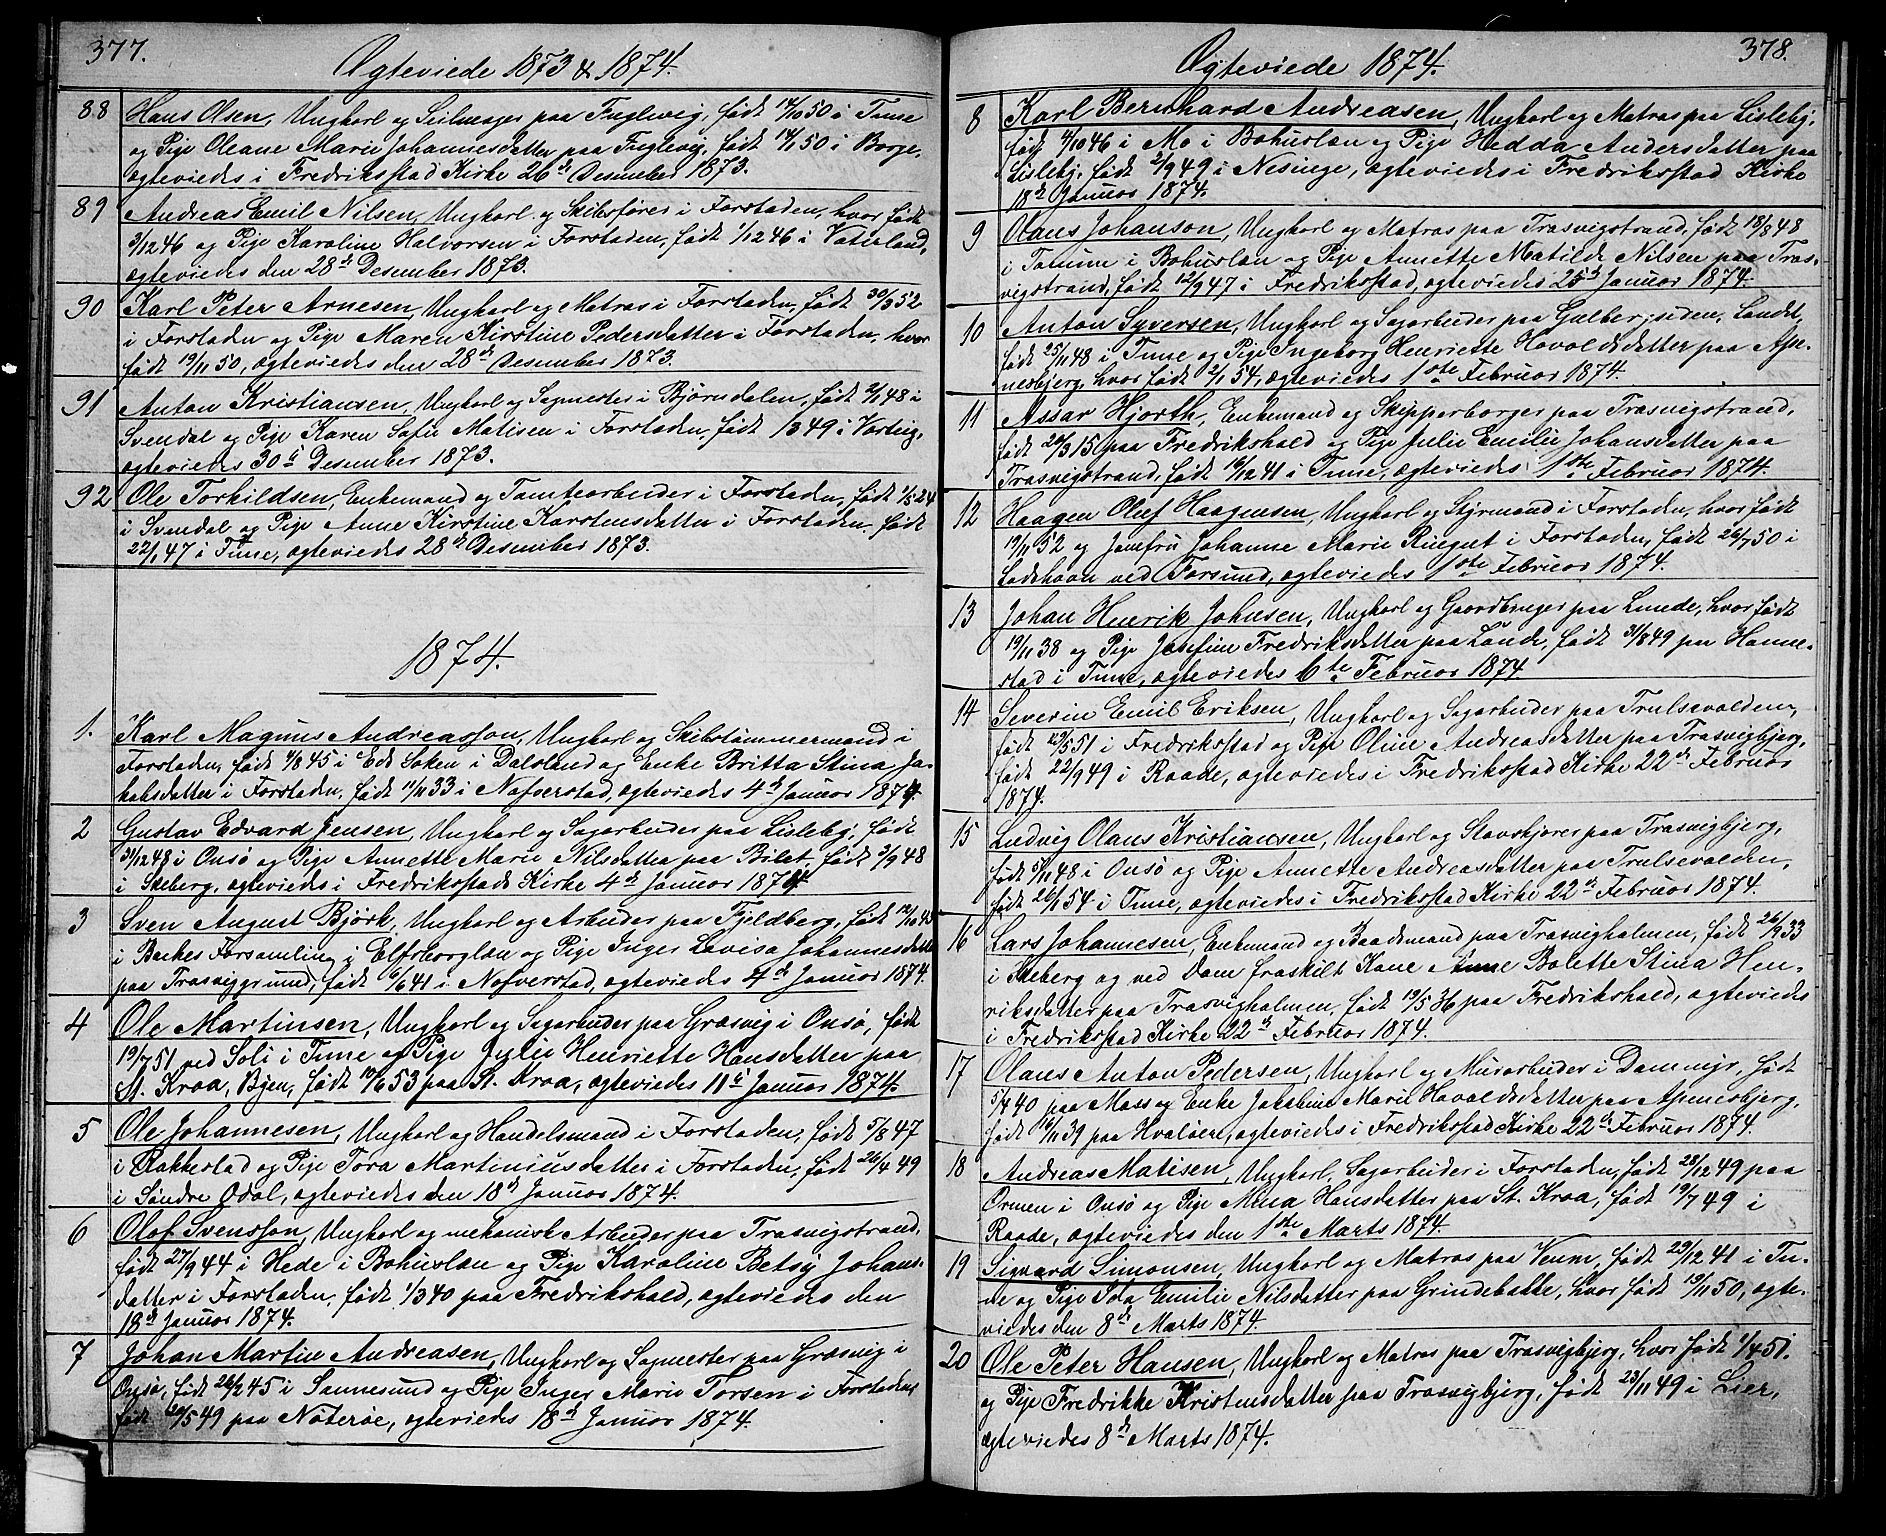 377.
Ægteviede 1873 & 1874.
88 Hans Olsen, Ungkarl og Seilmager paa Fuglevig, født 14/10 50 i Tune
og Pige Oleane Marie Johannesdatter paa Fuglevig, født 14/1 50 i Borge,
ægteviedes i Fredriksstad Kirke 26de Desember 1873.
89 Andreas Emil Nilsen, Ungkarl og Skibsfører i Forstaden, hvor født
3/12 46 og Pige Karoline Halvorsen i Forstaden, født 1/12 46 i Vaterland,
ægteviedes den 28de Desember 1873.
90 Karl Peter Arnesen, Ungkarl og Matros i Forstaden, født 30/3 52
i Forstaden og Pige Maren Kirstine Pedersdatter i Forstaden, hvor
født 19/11 50, ægteviedes den 28de Desember 1873.
91 Anton Kristiansen, Ungkarl og Sagmester i Bjørndalen, født 2/1 48 i
Svendal og Pige Karen Sofie Matisen i Forstaden, født 1849 i Varteig,
ægteviedes 30te Desember 1873.
92 Ole Torkildsen, Enkemand og Tomtearbeider i Forstaden, født 1/5 24
i Svendal og Pige Anne Kirstine Karstensdatter i Forstaden, født
22/1 47 i Tune, ægteviedes 28de Desember 1873.
1874.
1. Karl Magnus Andreasson, Ungkarl og Skibstømmermand i
Forstaden, født 4/8 45 i Eds Soken i Dalsland og Enke Britta Stina Ja-
kobsdatter i Forstaden, født 11/11 33 i Nafverstad, ægteviedes 4de Januar 1874.
2 Gustav Edvard Jensen, Ungkarl og Sagarbeider paa Lisleby, født
31/12 48 i Onsø og Pige Annette Marie Nilsdatter paa Bilet, født 3/9 48
i Skeberg, ægteviedes i Fredriksstads Kirke 4de Januar 1874.
3 Sven August Björk, Ungkarl og Arbeider paa Fjeldberg, født 12/10 43
i Berkes Forsamling i Elfsborglän og Pige Inger Lovisa Johannesdatter
paa Trosviggrund, født 6/6 41 i Nafverstad, ægteviedes 4de Januar 1874.
4 Ole Martinsen, Ungkarl og Sagarbeider paa Græsvig i Onsø, født
19/7 51 ved Soli i Tune og Pige Julie Henriette Hansdatter paa
St. Kroa, Byen, født 10/6 53 paa St. Kroa, ægteviedes 11te Januar 1874.
5 Ole Johannesen, Ungkarl og Handelsmand i Forstaden, født 5/8 47
i Rakkestad og Pige Tora Martiniusdatter i Forstaden, født 26/4 49
i Søndre Odal, ægteviedes den 18de Januar 1874.
6 Olof Svensson, Ungkarl og mekanisk Arbeider paa Trosvigstrand,
født 27/9 44 i Hede i Bohuslän og Pige Karoline Betsy Johans-
datter i Forstaden, født 1/3 40 paa Fredrikshald, ægteviedes den
18de Januar 1874.
7 Johan Martin Andreasen, Ungkarl og Sagmester paa Græsvig i
Onsø, født 26/2 45 i Sannesund og Pige Inger Marie Torsen i Forstaden,
født 20/5 49 paa Nøterøe, ægteviedes 18de Januar 1874.
378.
Ægteviede 1874.
8 Karl Bernhard Andreasen, Ungkarl og Matros paa Lisleby,
født 4/10 46 i Mo i Bohuslän og Pige Hedda Andersdatter paa
Lisleby, født 2/9 49 i Nesinge, ægteviedes i Fredriksstad Kirke
18de Januar 1874.
9 Olaus Johanson, Ungkarl og Matros paa Trosvigstrand, født 18/8 48
i Tanum i Bohuslän og Pige Annette Matilde Nilsen paa Tros-
vigstrand, født 12/9 47 i Fredriksstad, ægteviedes 25de Januar 1874.
10 Anton Syversen, Ungkarl og Sagarbeider paa Gulbergsiden, Landet,
født 25/11 48 i Tune og Pige Ingeborg Henriette Havaldsdatter paa Apen-
nesbjerg, hvor født 2/1 54, ægteviedes 1ste Februar 1874.
11 Assar Hjorth, Enkemand og Skipperborger paa Trosvigstrand,
født 20/3 15 paa Fredrikshald og Pige Julie Emilie Johansdatter paa
Trosvigstrand, født 16/12 41 i Tune, ægteviedes 1ste Februar 1874.
12 Haagen Oluf Haagensen, Ungkarl og Styrmand i Forstaden, hvor født
19/11 52 og Jomfru Johanne Marie Ruegut i Forstaden, født 26/7 50 i
Ladehavn ved Farsund, ægteviedes 1ste Februar 1874.
13 Johan Henrik Johnsen, Ungkarl og Gaardbruger paa Lunde, hvor født
19/11 38 og Pige Josefine Fredriksdatter paa Lunde, født 31/8 49 paa Hanne-
stad i Tune, ægteviedes 6te Februar 1874.
14 Severin Emil Eriksen, Ungkarl og Sagarbeider paa Trulsevolden,
født 22/5 51 i Fredriksstad og Pige Oline Andreasdatter paa Trosvigbjerg,
født 22/9 49 i Raade, ægteviedes i Fredriksstad Kirke 22de Februar
1874.
15 Ludvig Olaus Kristiansen, Ungkarl og Slovskjører paa Trosvigbjerg,
født 5/11 48 i Onsø og Pige Annette Andreasdatter paa Trulsevolden,
født 26/1 54 i Tune, ægteviedes i Fredriksstad Kirke 22de Februar 1874.
16 Lars Johannesen, Enkemand og Baadsmand paa Trosvigholmen, født 26/9 33
i Skeberg og ved Dom fraskilt Kone Anne Bolette Stina Hen-
riksdatter paa Trosvigholmen, født 19/5 36 paa Fredrikshald, ægteviedes
i Fredriksstad Kirke 22de Februar 1874.
17 Olaus Anton Pedersen, Ungkarl og Murarbeider i Dammyr, født
5/4 40 paa Moss og Enke Jakobine Marie Havaldsdatter paa Apenesbjerg,
født 16/11 39 paa Hvaløere, ægteviedes i Fredriksstad Kirke 22de Februar 1874.
18 Andreas Matisen, Ungkarl, Sagarbeider i Forstaden, født 28/12 49 paa
Ørmen i Onsø og Pige Mina Hansdatter paa St. Kroa, født 19/7 49 i
Raade, ægteviedes den 1ste Marts 1874.
19 Sigvard Simonsen, Ungkarl og Matros paa Veum, født 29/12 41 i Tu-
ne og Pige Ida Emilie Nilsdatter paa Grindebakke, hvor født 19/11 50, ægte-
viedes den 8de Marts 1874.
20 Ole Peter Hansen, Ungkarl og Matros paa Trosvigbjerg, hvor født 1/4 51.
og Pige Fredrikke Kristensdatter paa Trosvigbjerg, født 23/11 49 i Lier,
ægteviedes 8de Marts 1874.